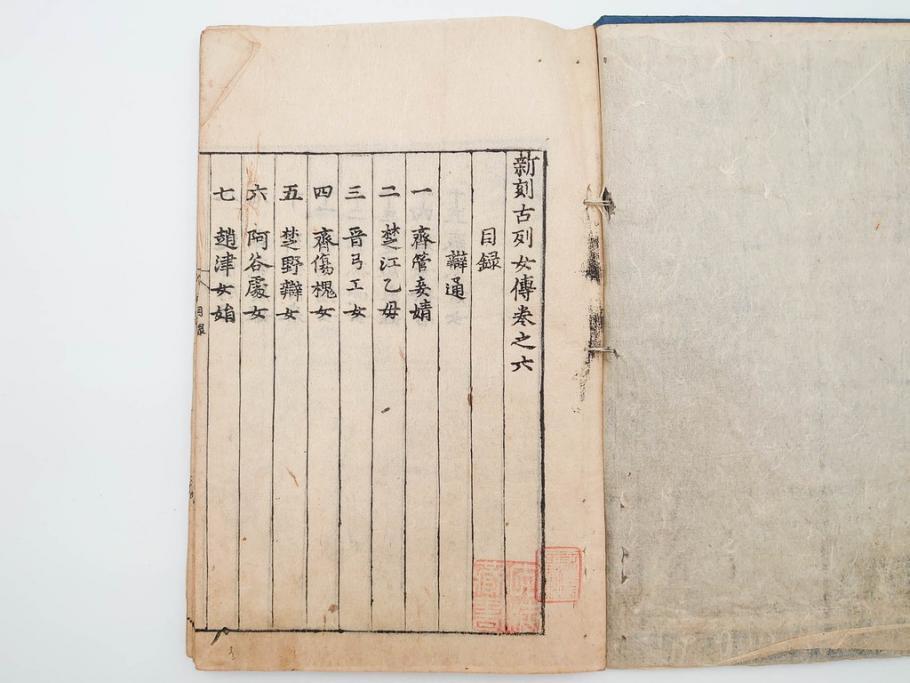 新刻古列女傳卷之六
目録
辯通
一 齊管妾婧
二 楚江乙母
三 晋弓工女
四 齊傷槐女
五 楚野辯女
六 阿谷處女
七 趙津女娟